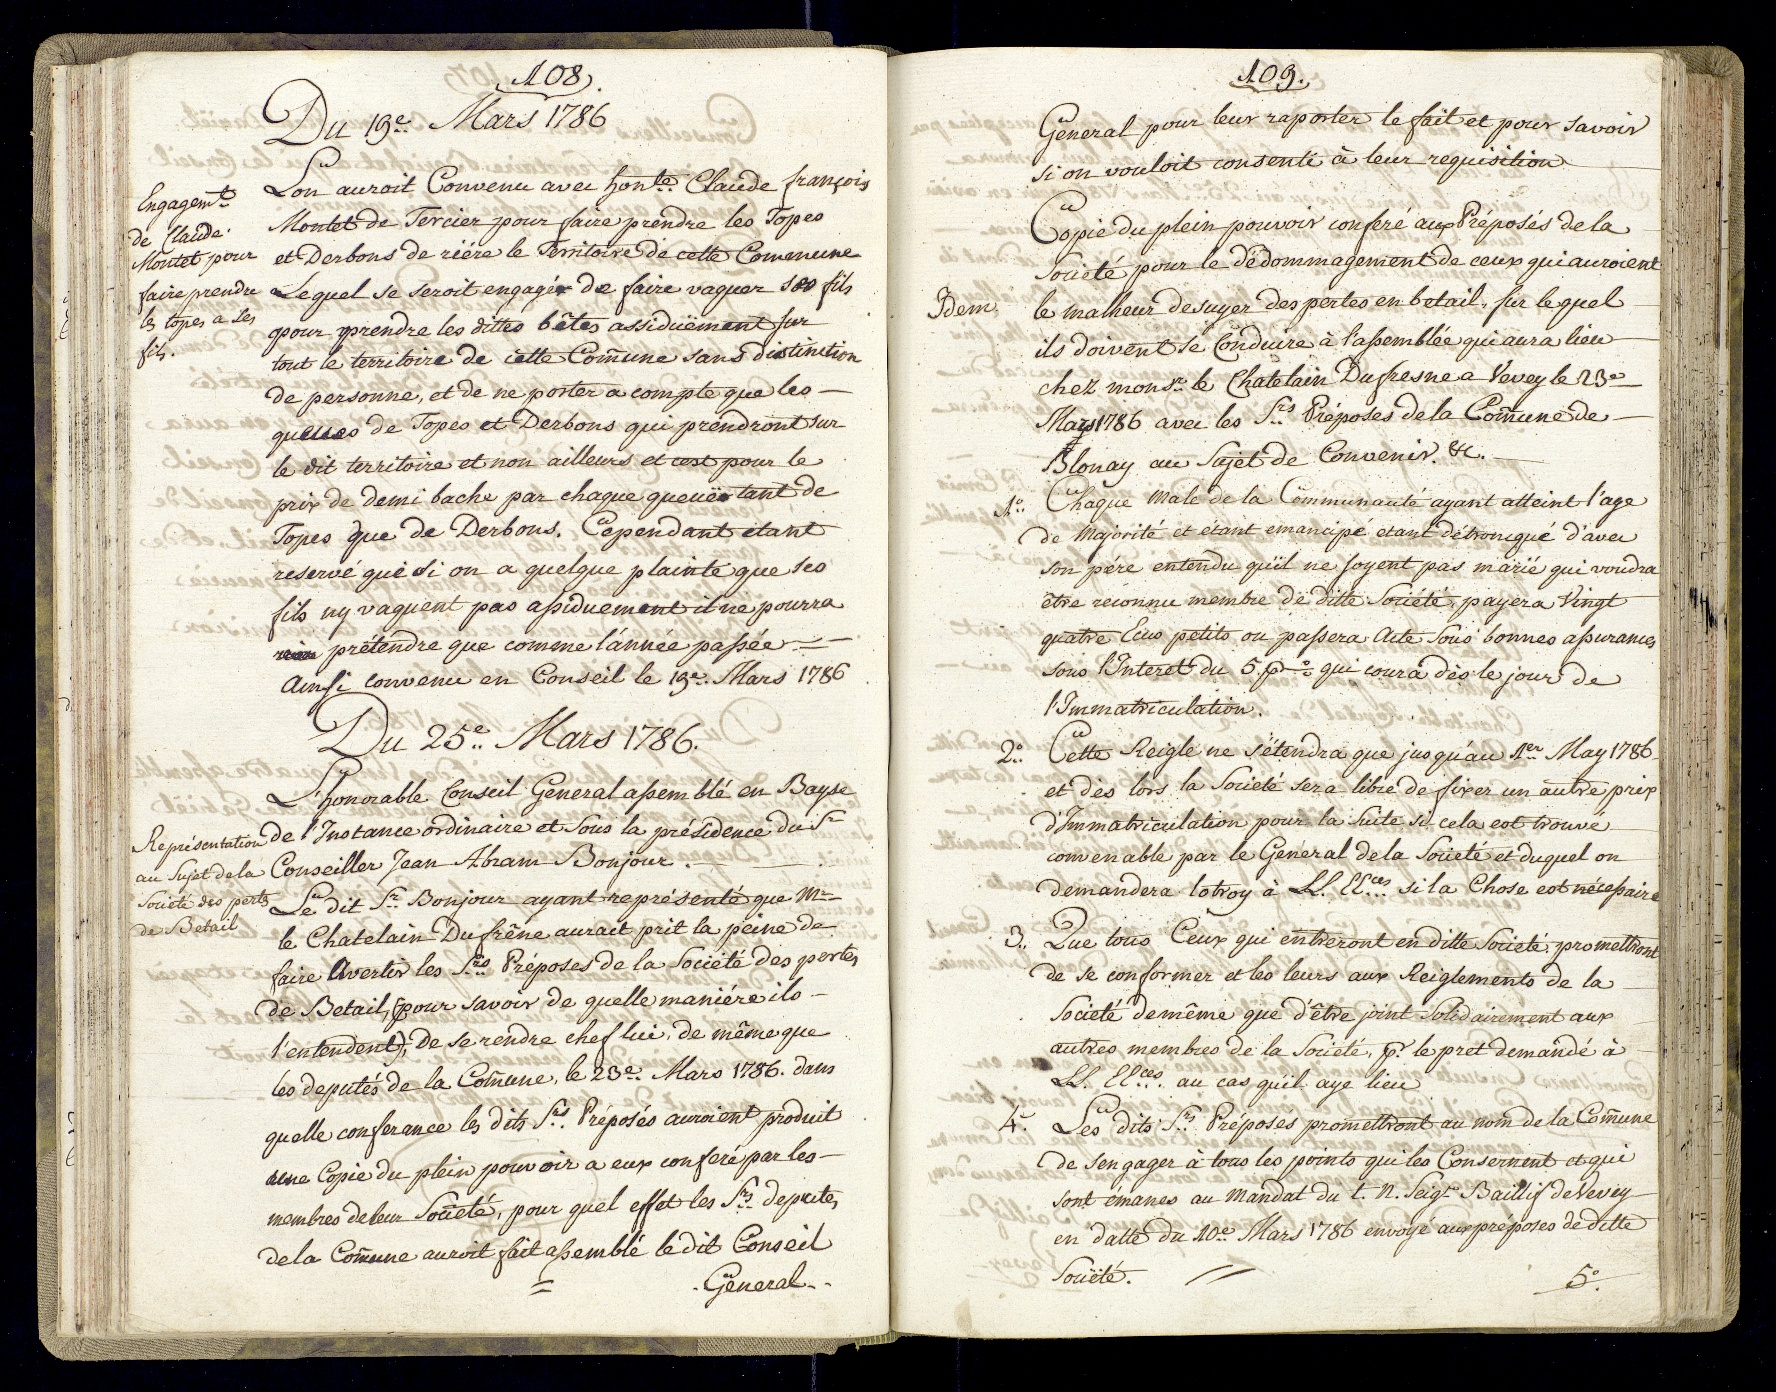 108.
Du 19.e Mars 1786
Engagem.t
de Claude
Montet pour
faire prendre
les topes a ses
fils.
Lon auroit Convenu avec hon.le Claude françois
Montet de Tercier pour faire prendre les Topes
et Derbons de riére le Territoire de cette Commune
Lequel se seroit engagér de faire vaquer ses fils
pour prendre les dittes bêtes assiduëment sur
tout le territoire de cette Comune sans distinction
de personne, et de ne porter a compte que les
queues de Topes et Derbons qui prendront sur
le dit territoire et non ailleurs et cest pour le
prix de demi bache par chaque queuës tant de
Topes que de Derbons. Cependant etant
reservé que si on a quelque plainte que ses
fils ny vaquent pas assiduement il ne pourra
rien prétendre que comme l'année passée
Ainsi convenu en Conseil le 19.e Mars 1786
Du 25.e Mars 1786.
Représentation
au Sujet de la
Societé des pertes
de Betail
L'honorable Conseil General assemblé en Bayse
de l'Instance ordinaire et sous la présidence du S.r
Conseiller Jean Abram Bonjour.
Le dit S.r Bonjour ayant représenté que M.r
le Chatelain Dufrêne aurait prit la peine de
faire Avertir les S.rs Préposés de la Société des pertes
de Betail, (pour savoir de quelle maniére ils
l'entendent), De se rendre chef lui, de même que
les deputés de la Comune, le 23.e Mars 1786. dans
quelle conferance les dits S.rs Préposés auroient produit
une Copie du plein pouvoir a eux conferé par les
membres de leur Societé, pour quel effet les S.rs deputes
de la Comune auroit fait assemblé le dit Conseil
General
109.
General pour leur raporter le fait et pour savoir
si on vouloit consenti à leur requisition
Idem.
Copie du plein pouvoir conferé aux Préposés de la
Societé pour le dédommagement de ceux qui auroient
le malheur desuyer des pertes en betail, sur le quel
ils doivent se Conduire à l'assemblée qui aura lieu
chez mons.r le Chatelain Dufresne a Vevey le 23e
Mars 1786 avec les S.rs Préposes de la Comune de
Blonay au Sujet de Convenir. &c.
1.o Chaque Male de la Communauté ayant atteint l'age
de Majorité et étant emancipé etant détronqué d'avec
son pére entendu qu'il ne soyent pas marïé qui voudra
être reconnu membre de ditte Societé, payera Vingt
quatre Ecus petits ou passera Acte sous bonnes assurances
sous l'Interet du 5. p. % qui coura dès le jour de
l'Immatriculation.
2.o Cette Reigle ne s'étendra que jusqu'au 1.er May 1786
et dès lors la Societé sera libre de fixer un autre prix
d'Immatriculation pour la suite si cela est trouvé
convenable par le General de la Societé et duquel on
demandera lotroy à LL. EE.ces si la Chose est nécessaire
3.. Que tous Ceux qui entreront en ditte Societé promettront
de se conformer et les leurs aux Reiglements de la
Societé demême que d'être joint Solidairement aux
autres membres de la Societé, p.r le pret demandé à
LL. EE.ces au cas qu'il aye lieu
4. Les dits S.rs Préposés promettront au nom de la Comune
de sengager à tous les points qui les Conservent et qui
sont émanes au Mandat du t. n. Seig.r Baillif de Vevey
en datte du 10.e Mars 1786 envoyé aux préposés de ditte
Societé.
5.o